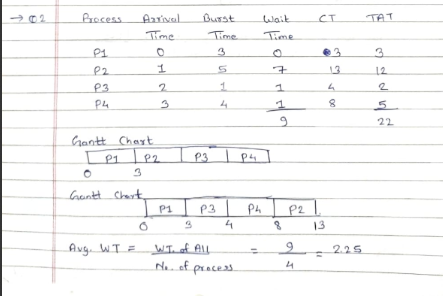 → Q2 Process Arrival Burst Wait CT TAT
Time Time Time
P1 0 3 0 3 3
P2 1 5 7 13 12
P3 2 1 1 4 2
P4 3 4 1 8 5
9 22
Gantt Chart
P1 P2 P3 P4
0 3
Gantt Chart
P1 P3 P4 P2
0 3 4 8 13
Avg. WT = WT. of All = 9 = 2.25
No. of process 4